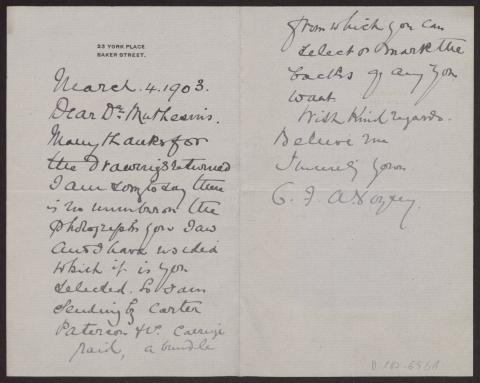 23 YORK PLACE
BAKER STREET.
March. 4. 1903.
Dear Dr. Muthesius.
Many thanks for
the Drawings returned
I am sorry to say there
is no number on the
photographs you saw
and I have no idea
which it is you
selected. So I am
sending by Carter
Paterson & Co. Carriage
paid, a bundle
from which you can
select or mark the
backs of any you
want
With kind regards.
Believe me
Sincerely yours
C. F. A. Voysey.